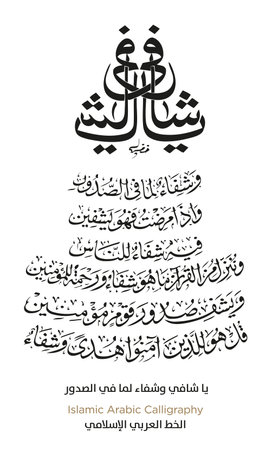 وَشِفَاءٌ لِمَا فِي الصُّدُورِ
وَإِذَا مَرِضْتُ فَهُوَ يَشْفِينِ
فِيهِ شِفَاءٌ لِلنَّاسِ
وَنُنَزِّلُ مِنَ الْقُرْآنِ مَا هُوَ شِفَاءٌ وَرَحْمَةٌ لِلْمُؤْمِنِينَ
وَيَشْفِ صُدُورَ قَوْمٍ مُؤْمِنِينَ
قُلْ هُوَ لِلَّذِينَ آمَنُوا هُدًى وَشِفَاءٌ
يا شافي وشفاء لما في الصدور
Islamic Arabic Calligraphy
الخط العربي الإسلامي